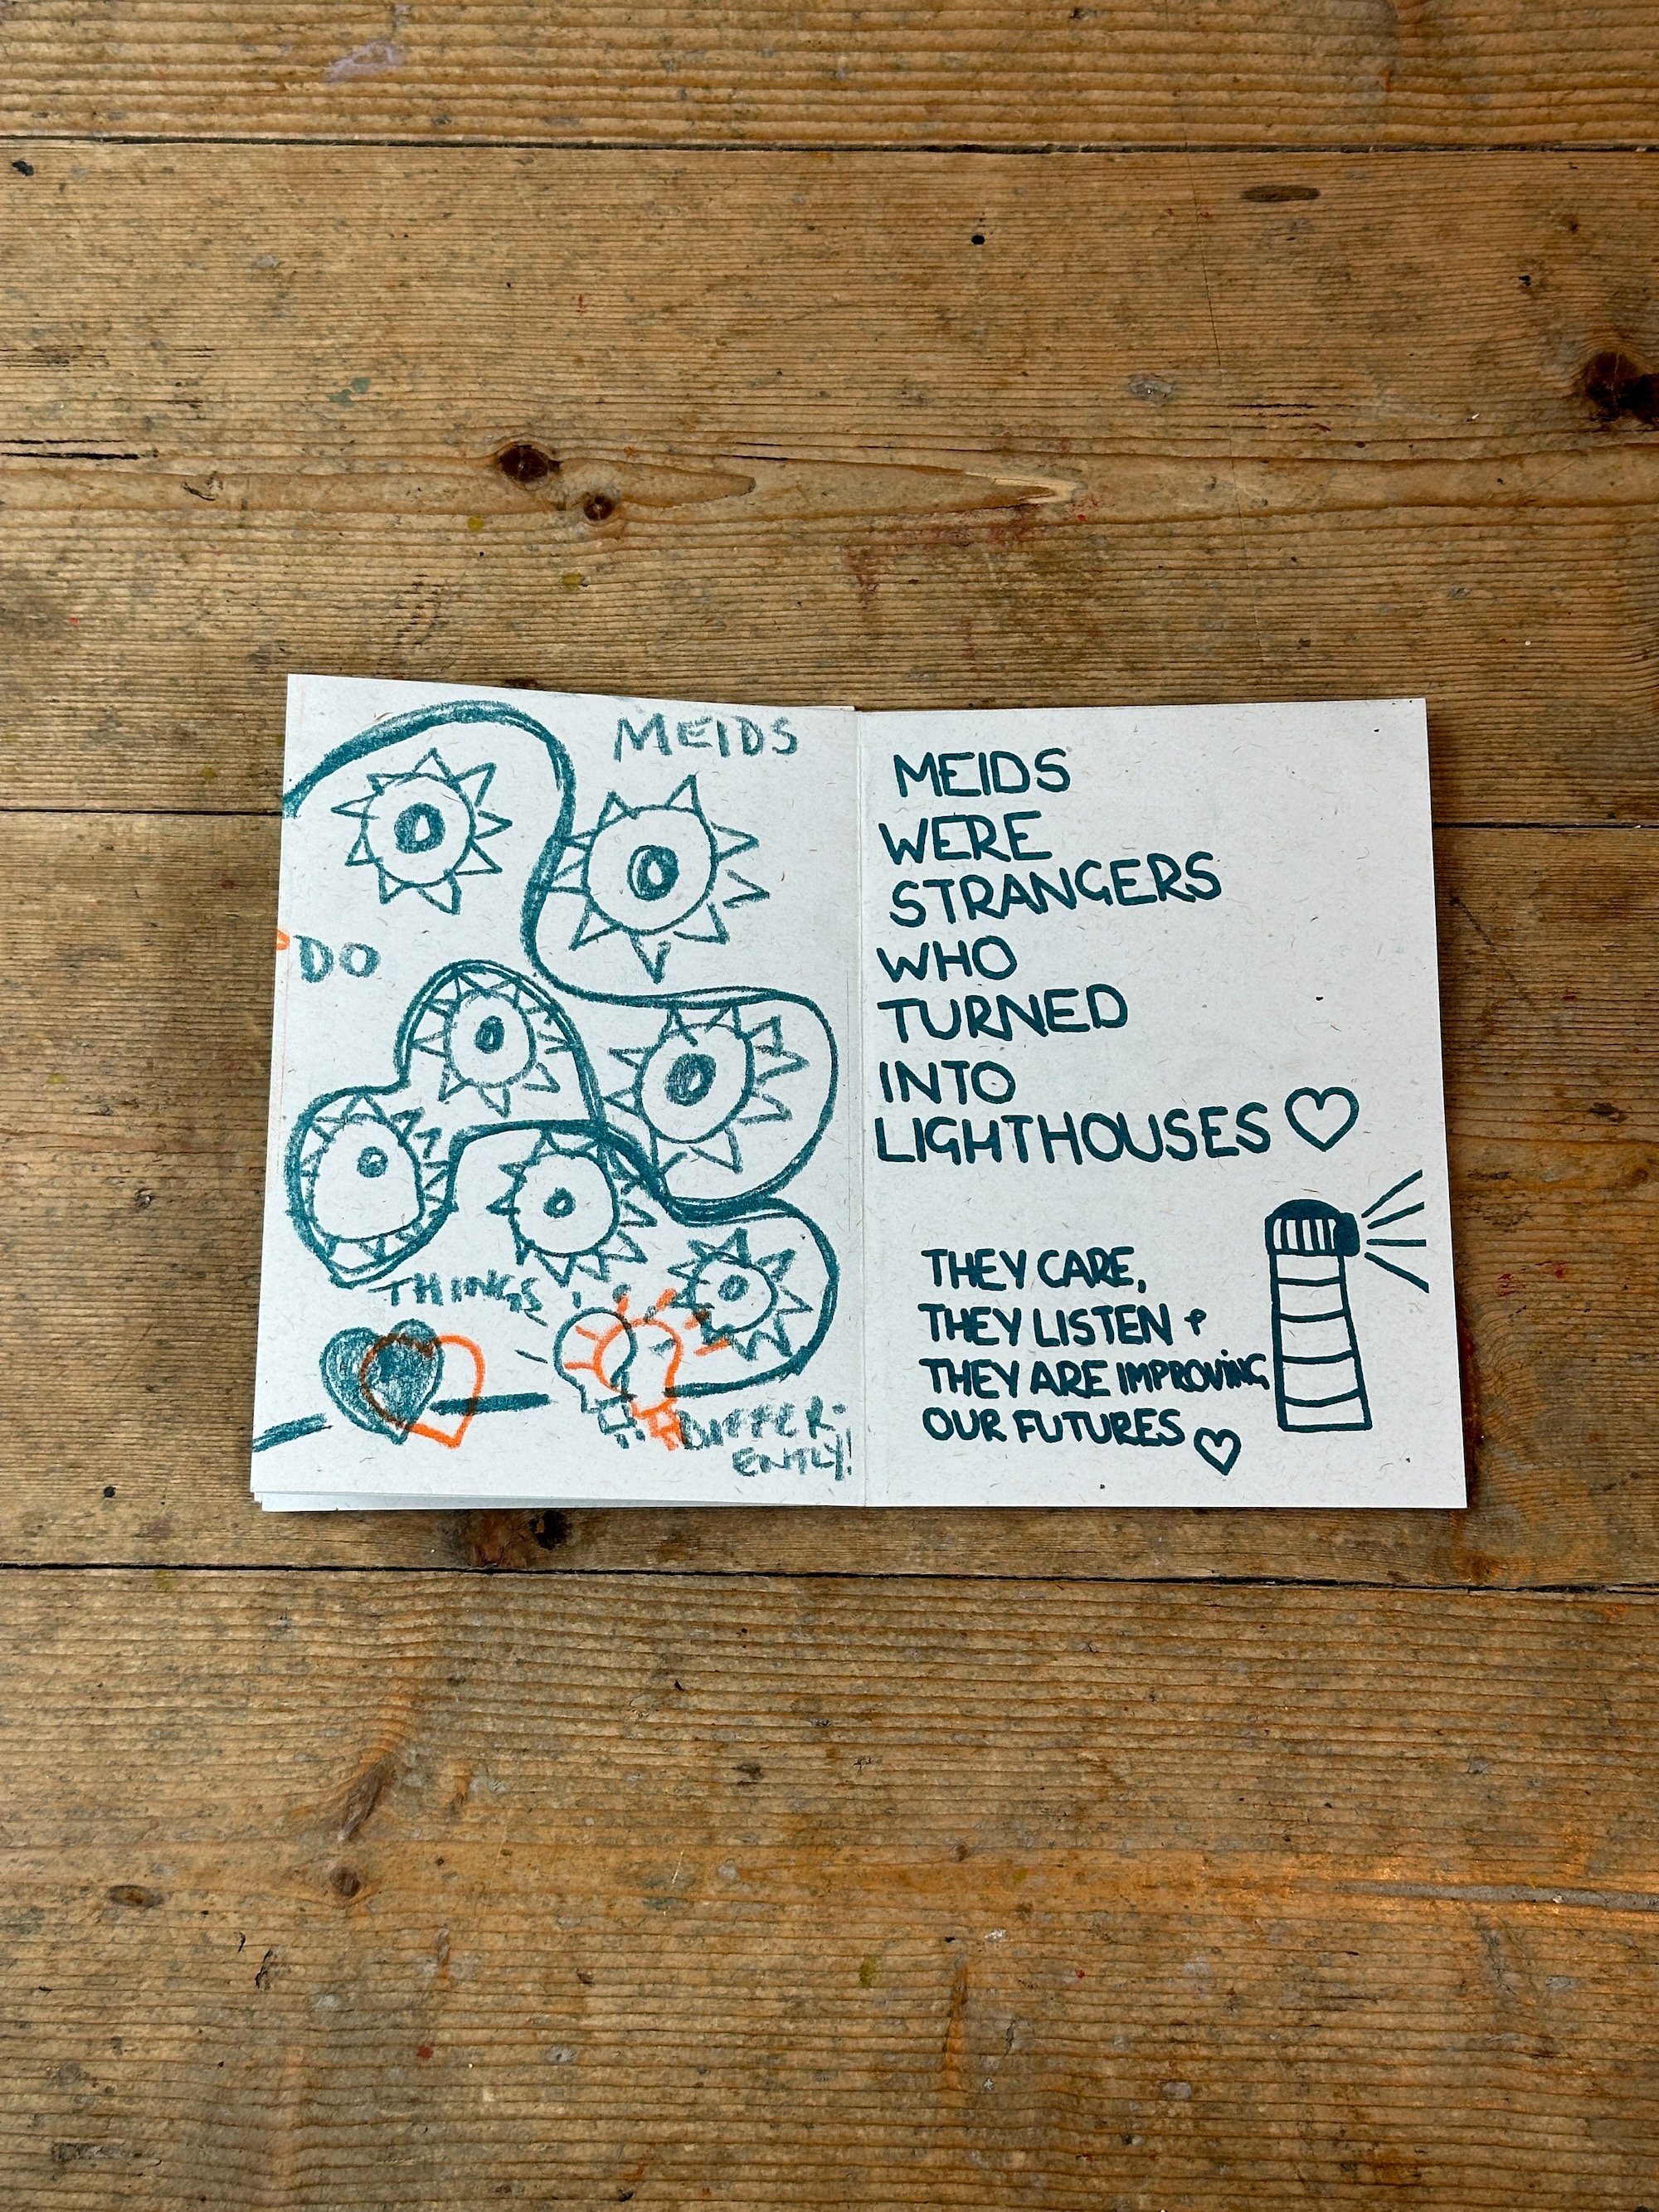 MEIDS
DO
THINGS
DIFFER-
ENTLY!
MEIDS
WERE
STRANGERS
WHO
TURNED
INTO
LIGHTHOUSES
THEY CARE,
THEY LISTEN +
THEY ARE IMPROVING
OUR FUTURES